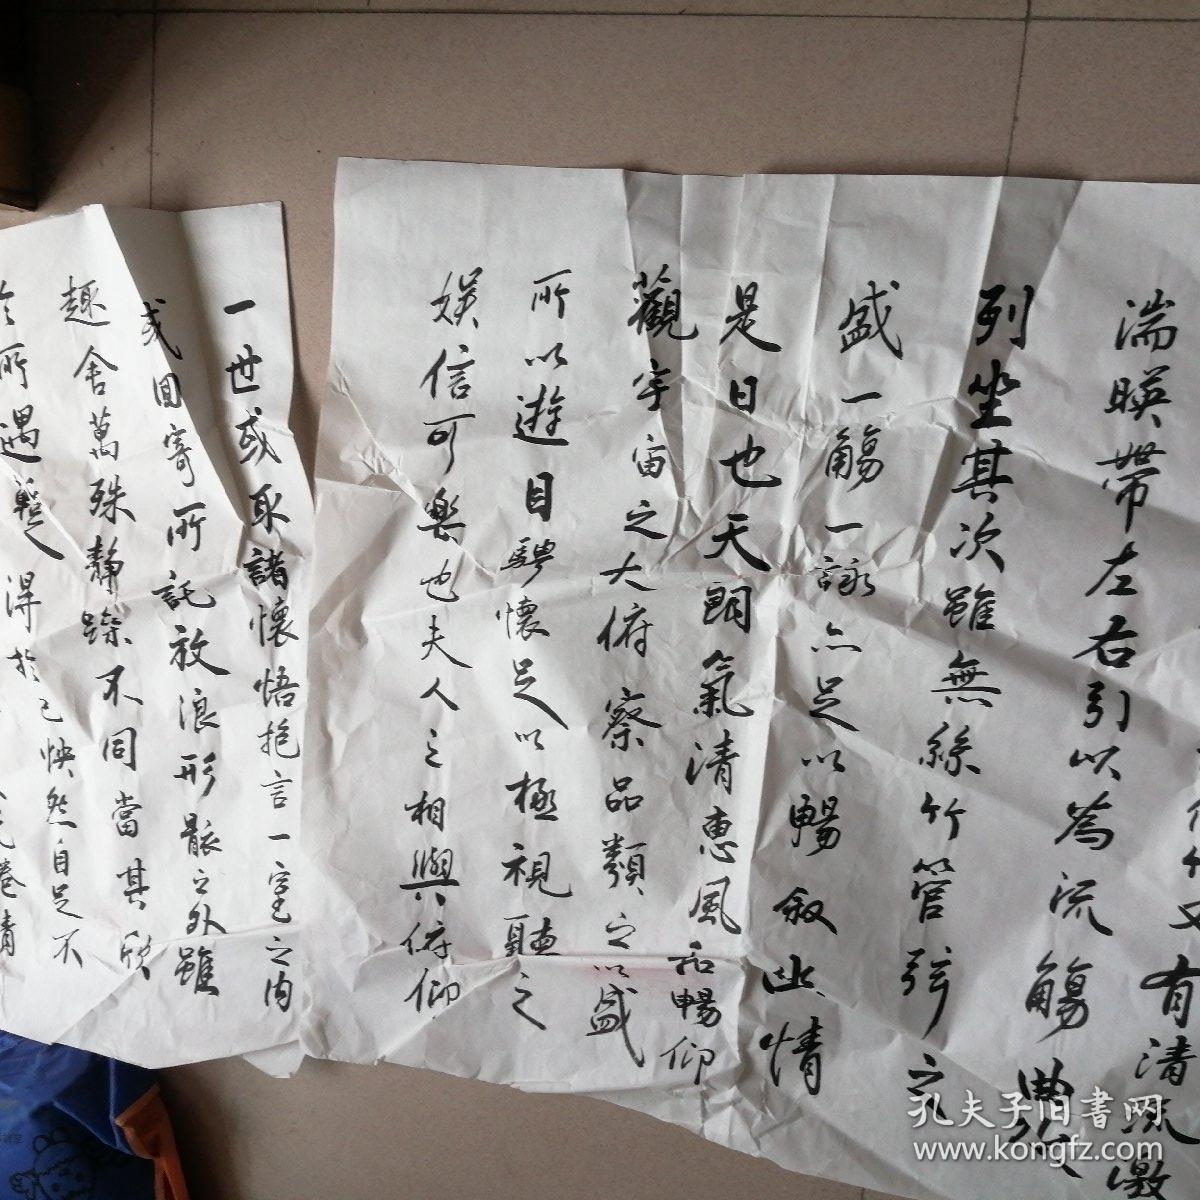 有清流激
湍暎帶左右引以為流觴曲水
列坐其次雖無絲竹管弦之
盛一觴一詠亦足以暢叙幽情
是日也天朗氣清惠風和暢仰
觀宇宙之大俯察品類之以盛
所以遊目騁懷足以極視聽之
娛信可樂也夫人之相與俯仰
一世或取諸懷悟抱言一室之内
或因寄所託放浪形骸之外雖
趣舍萬殊静躁不同當其欣
於所遇暫得於己怏然自足不
孔夫子旧书网
www.kongfz.com